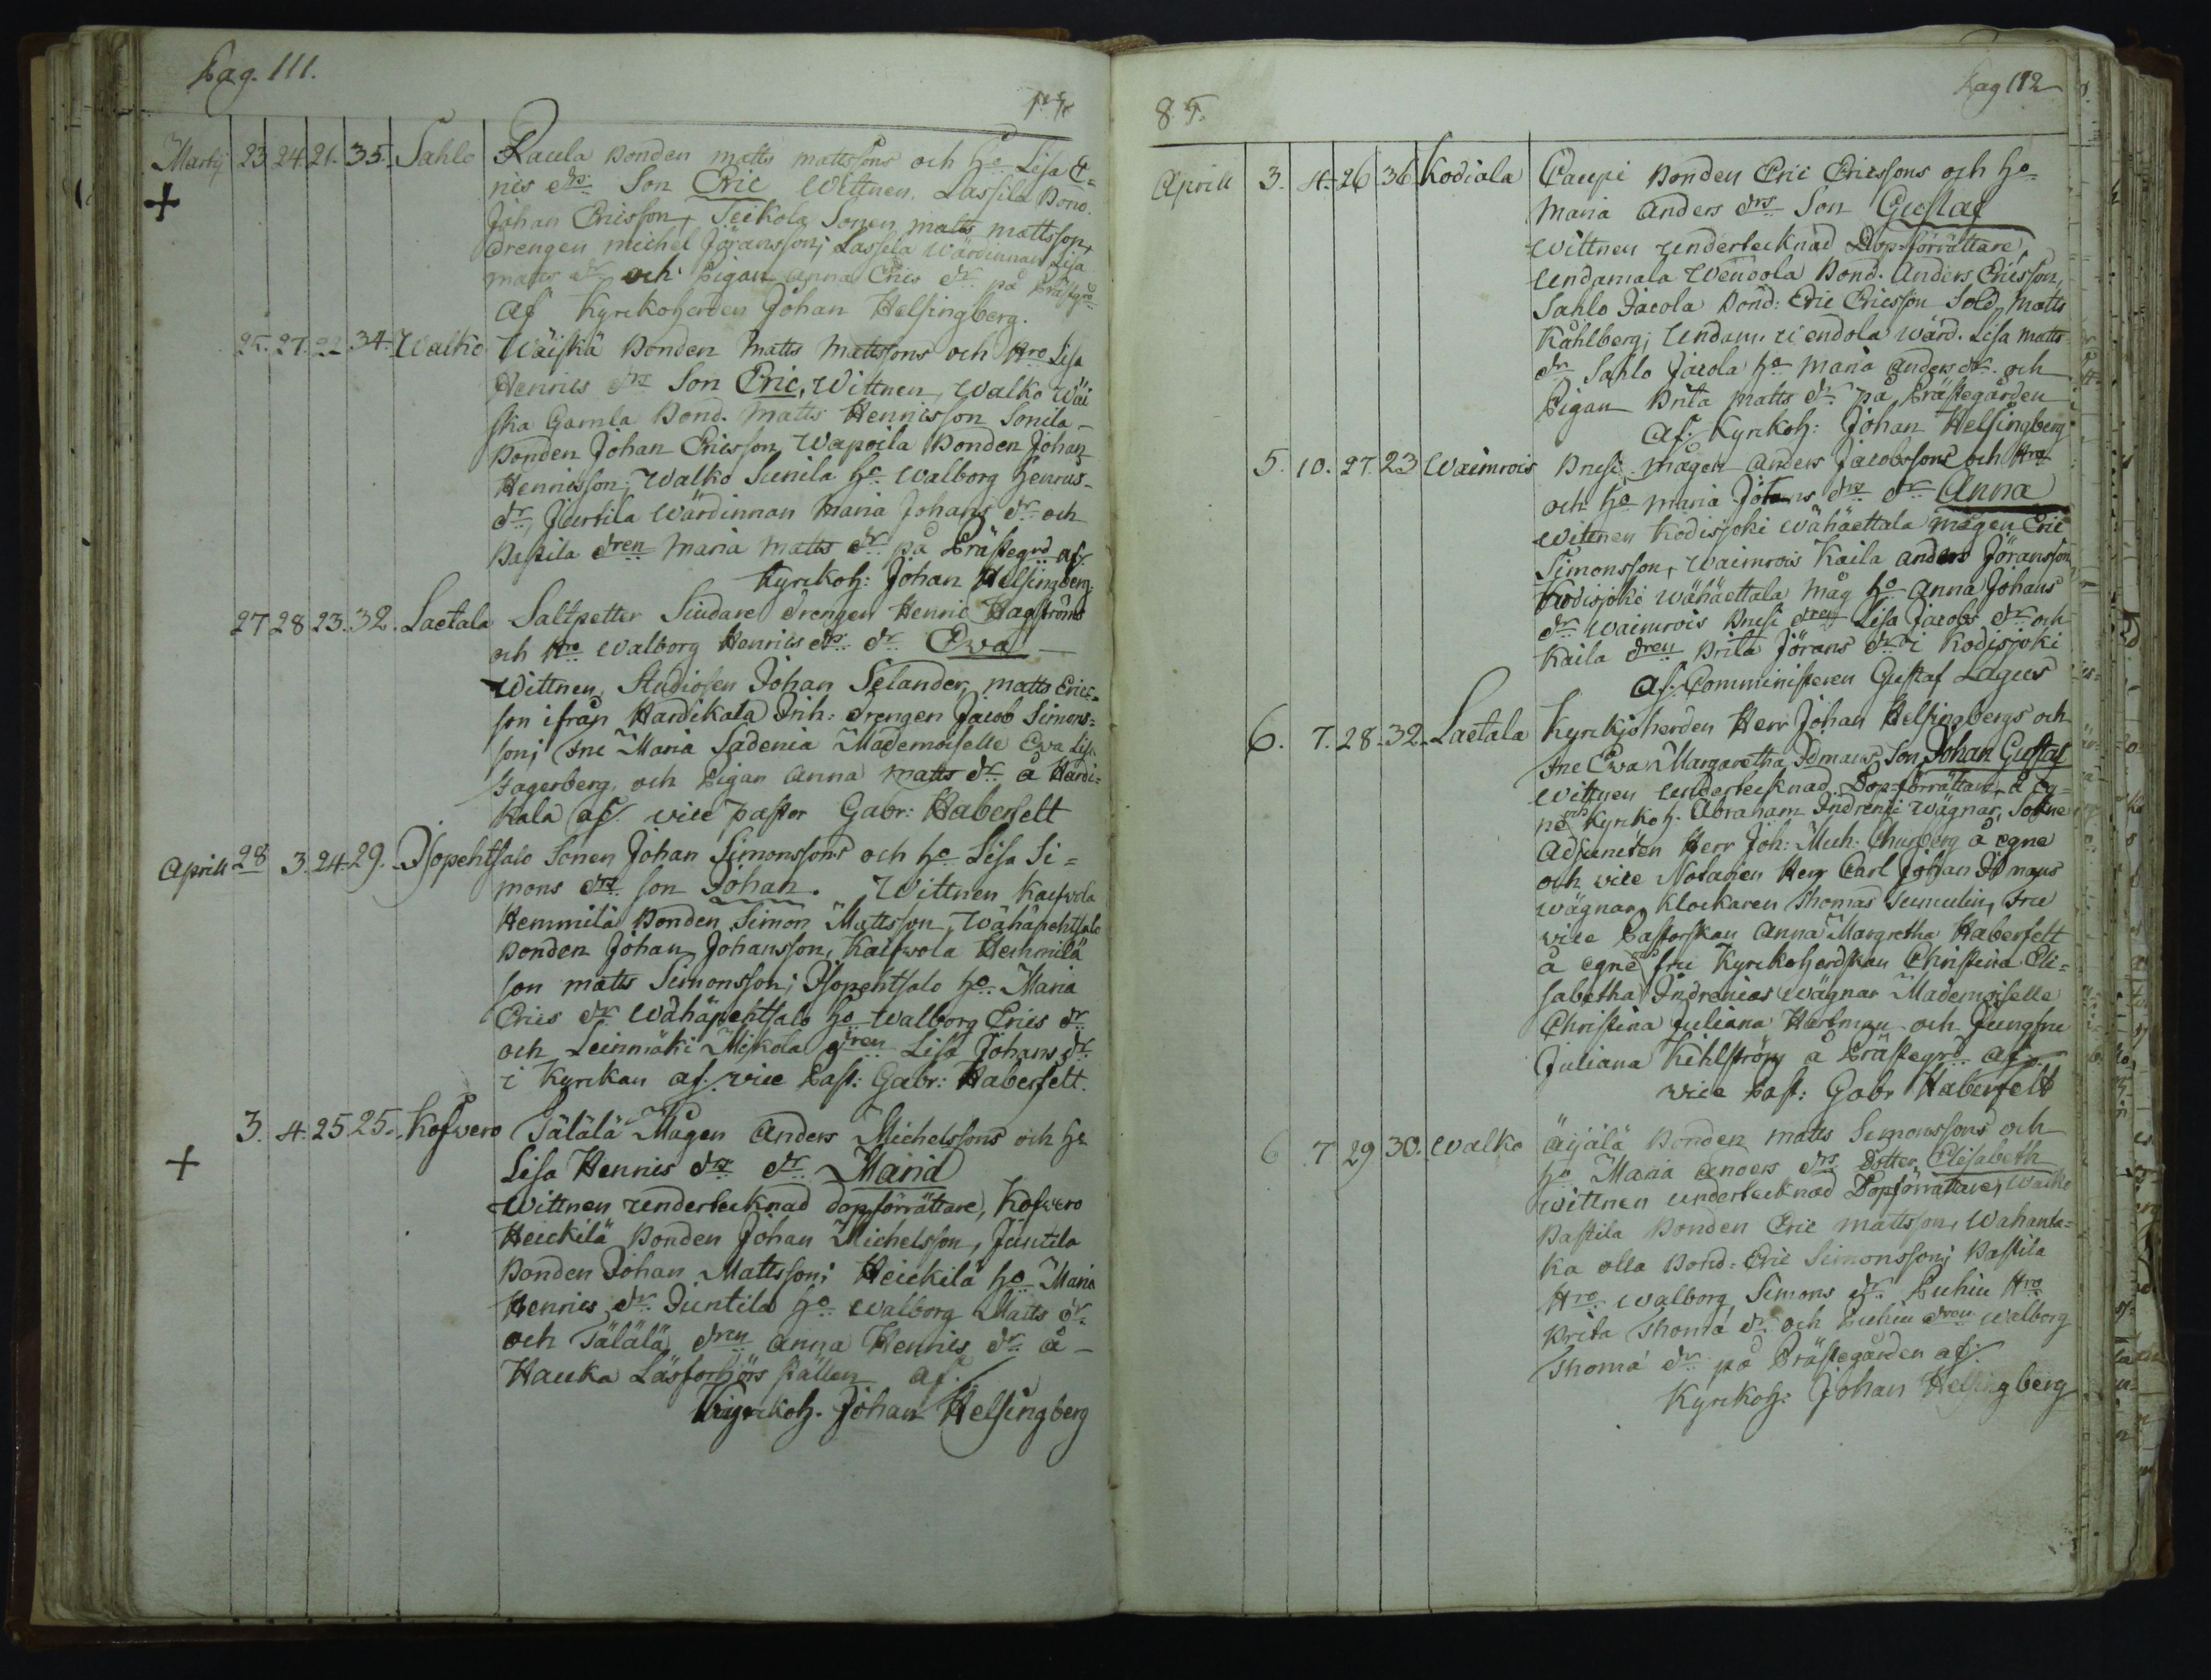 Pag. 111.
Martij 23. 24. 21. 35. Sahlo Raula Bonden Matts Mattssons och ho Lisa E=
rics drs Son Eric Wittnen. Lassila Bond.
Johan Ericsson, Seikola Sonen Matts Mattsson,
Drengen Michel Jöransson; Lassila Wärdinnan Lisa
Matts dr och Pigan Anna Erics dr på Prästgrd
af Kyrckoherden Johan Helsingberg.
25. 27. 22 34. Walko Wäiskä Bonden Matts Mattssons och Hro Lisa
Henrics drs Son Eric, Wittnen, Walko Wäi
skä Gamla Bond. Matts Henricsson Sonila
Bonden Johan Ericsson Wapoila Bonden Johan
Henricsson; Walko Sunila ho Walborg Henrics
dr, Juttila Wärdinnan Maria Johans dr och
Pastila dren Maria Matts dr på Prästegrd af.
Kyrckoh: Johan Helsingberg.
27 28 23. 32. Laetala Saltpetter Siudare Drengen Henric Hagströms
och Hro Walborg Henrics drs dr Ewa
Wittnen, Studiosen Johan Selander, Matts Erics=
son ifrån Hardikala Inh: Drengen Jacob Simons=
son; Fru Maria Sadenia Mademoiselle Ewa Lisa
Fagerberg, och Pigan Anna Matts dr å Hardi=
kala af. vice pastor Gabr: Haberfelt
Aprill 28 3. 24. 29. Isopehtsalo Sonen Johan Simonssons och ho Lisa Si=
mons drs son Johan. Wittnen Kaifvola
Hemmilä Bonden Simon Mattsson, Wähäpehtsalo
Bonden Johan Johansson, Kaifvola Hemmilä
son Matts Simonsson; Isopehtsalo ho Maria
Erics dr Wähäpehtsalo ho Walborg Erics dr
och Leinmäki Mikola dren Lisa Johans dr
i Kyrckan af. vice Past: Gabr: Haberfelt.
3. 4. 25 25. Kofwero Tälälä Mågen Anders Michelssons och ho
Lisa Henrics drs dr Maria
Wittnen undertecknad dopförrättare, Kofwero
Heickilä Bonden Johan Michelsson, Juntila
Bonden Johan Mattsson; Heickilä ho Maria
Henrics dr Juntila ho Walborg Matts dr
och Tälälä dren Anna Henrics dr å
Hauka Läsförhörs ställen af.
Kyrckoh. Johan Helsingberg
85.
Pag 112
Aprill 3. 4. 26 36 Kodiala Caupi Bonden Eric Ericssons och ho
Maria Anders drs Son Gustaf
Wittnen undertecknad Dop-förrättare,
Undamala Wendola Bond. Anders Ericsson,
Sahlo Jacola Bond: Eric Ericsson Sold. Matts
Kåhlberg; Undam. Wendola wärd. Lisa Matts
dr Sahlo Jacola ho Maria Anders dr och
Pigan Brita Matts dr på Prästegården
af. Kyrckoh: Johan Helsingberg
5. 10. 27. 23 Waimrois Prusi Mågen Anders Jacobssons och Hro
och ho Maria Johans drs dr Anna
Wittnen Kodisjoki Wähäettala mågen Eric
Simonsson, Waimrois Kaila Anders Jöransson
Kodisjoki Wähäettala Måg ho Anna Johans
dr Waimrois Prusi dren Lisa Jacobs dr och
Kaila dren Brita Jörans dr i Kodisjoki
af. Comministeren Gustaf Lagus
6. 7. 28. 32. Laetala Kyrckjoherden Herr Johan Helsingbergs och
Fru Ewa Margaretha Idmans Son Johan Gustaf
Wittnen Undertecknad Dop-förrättare å eg=
ne och Kyrckoh. Abraham Indreni wägnar, Sokne
Adjuncten Herr Joh: Mich: Churberg å egne
och vice Notarien Herr Carl Johan Idmans
wägnar, Klockaren Thomas Sumulin, Fru
vice Pastorskan Anna Margretha Haberfelt
å egne och fru Kyrckoherdskan Christina Eli=
sabetha Indrenias wägnar Mademoiselle
Christina Juliana Hartman och Jungfru
Juliana Kihlström å Prästegrd af.
vice Past: Gabr Haberfelt
6 7 29 30. Walko Äijälä Bonden Matts Simonssons och
ho Maria Anders drs Dotter Elisabeth
Wittnen undertecknad Dopförrättare, Walko
Pastila Bonden Eric Mattsson, Wahanta=
ka olla Bond: Eric Simonsson; Pastila
Hro Walborg Simons dr Puhiu Hro
Brita Thoma dr och Puhiu dren Walborg
Thoma dr på Prästegården af.
Kyrckoh: Johan Helsingberg